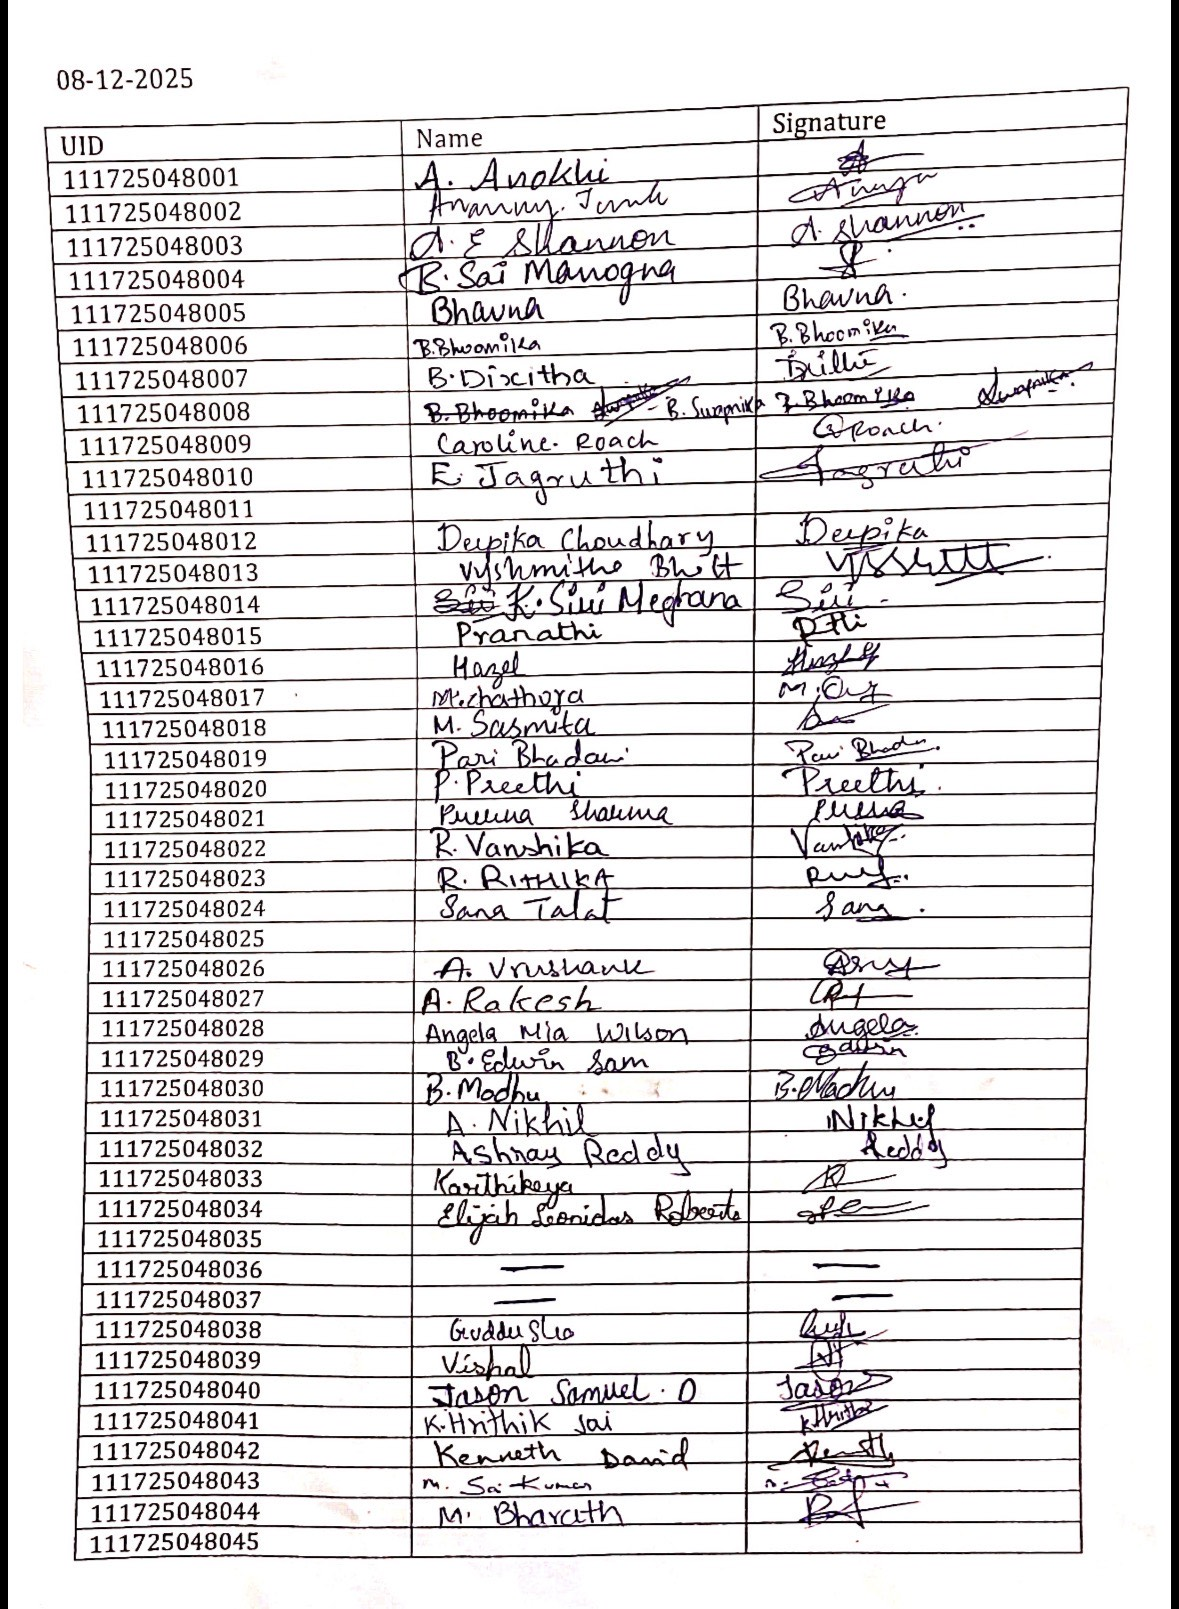 08-12-2025
UID Name Signature
111725048001 A. Anokhi
111725048002
111725048003 A. E Shannon A. Shannon
111725048004 B. Sai Manogna
111725048005 Bhavna Bhavna.
111725048006 B.Bhoomika B.Bhoomika
111725048007 B.Discitha
111725048008 B. Bhoomika B. Swapnika B. Bhoomika Swapnika
111725048009 Caroline. Roach Roach.
111725048010 E. Jagruthi Jagruthi
111725048011
111725048012 Deepika Choudhary Deepika
111725048013 Vyshmitha Bhitt
111725048014 Siri K. Siri Meghana Siri
111725048015 Pranathi
111725048016 Hazel
111725048017 M.chathurya
111725048018 M. Sasmita
111725048019 Pari Bhadani Pari
111725048020 P. Preethi Preethi.
111725048021 Purna Sharma Purna
111725048022 R. Vanshika
111725048023 R. RITHIKA
111725048024 Sana Talat Sana.
111725048025
111725048026 A. Vrushank
111725048027 A. Rakesh
111725048028 Angela Mia Wilson Angela
111725048029 B. Edwin Sam Edwin
111725048030 B. Madhu B. Madhu
111725048031 A. Nikhil Nikhil
111725048032 Ashray Reddy Reddy
111725048033 Karthikeya
111725048034 Elijah Leonidas Roberts
111725048035
111725048036 — —
111725048037 — —
111725048038 Guddu
111725048039 Vishal
111725048040 Jason Samuel. D Jason
111725048041 K.Hrithik Sai K Hrithik
111725048042 Kenneth David
111725048043 M. Sai Kumar
111725048044 M. Bharath
111725048045